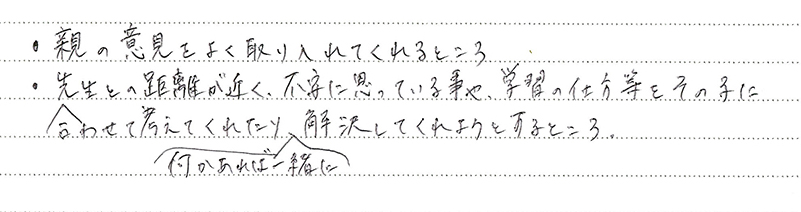 ・親の意見をよく取り入れてくれるところ
・先生との距離が近く、不安に思っている事や、学習の仕方等をその子に
合わせて考えてくれたり、解決してくれようとするところ。
何かあれば一緒に